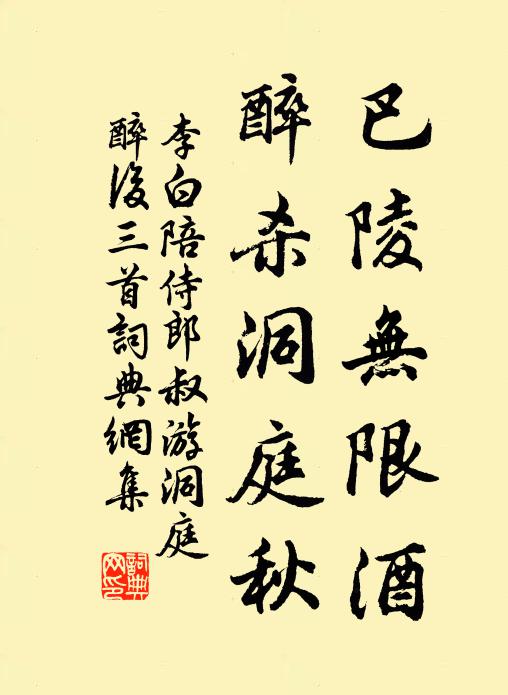 巴陵無限酒
醉杀洞庭秋
李白陪侍郎叔游洞庭
醉後三首詞典網集
詞典
网印